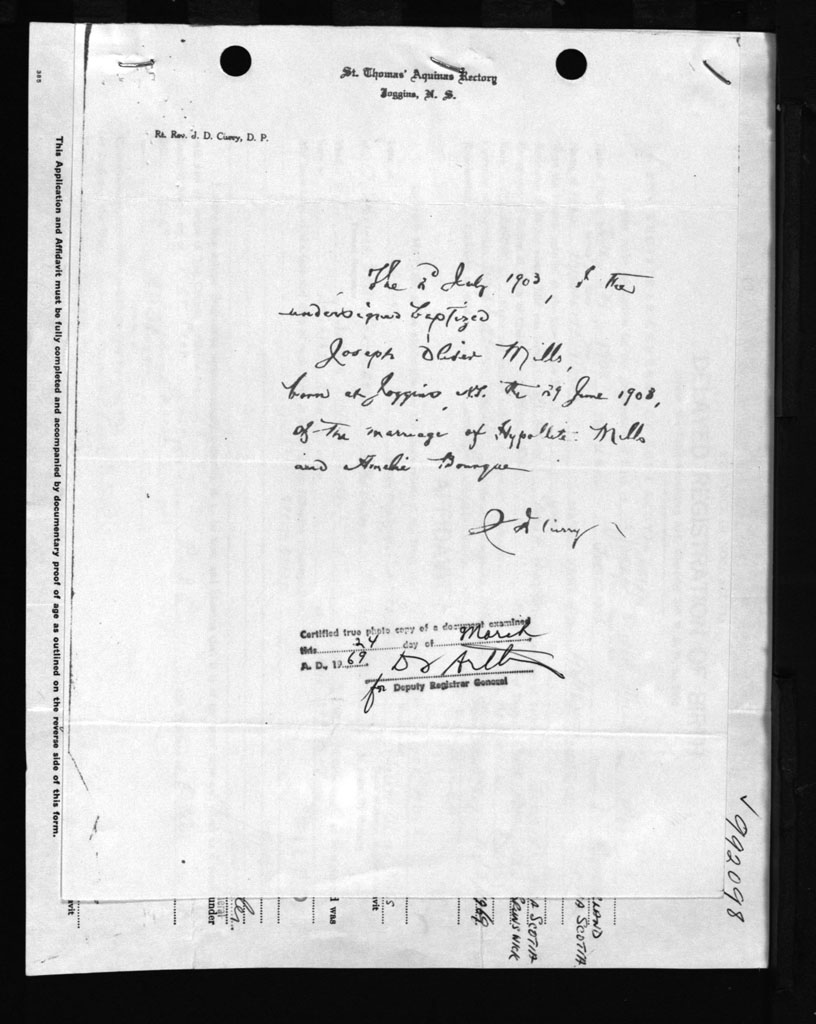 St. Thomas' Aquinas Rectory
Joggins, N. S.
Rt. Rev. J. D. Curry, D. P.
The 2d July 1903, I the
undersigned baptized
Joseph Oliver Mills,
born at Joggins, N.S. the 29 June 1903,
of the marriage of Hypollite Mills
and Amelie Bourque
J D Curry
Certified true photo copy of a document examined
this 24 day of March
A. D., 1969
for Deputy Registrar General
This Application and Affidavit must be fully completed and accompanied by documentary proof of age as outlined on the reverse side of this form.
992098
avit
under
I was
avit
1969
A SCOTIA
LAND
A SCOTIA